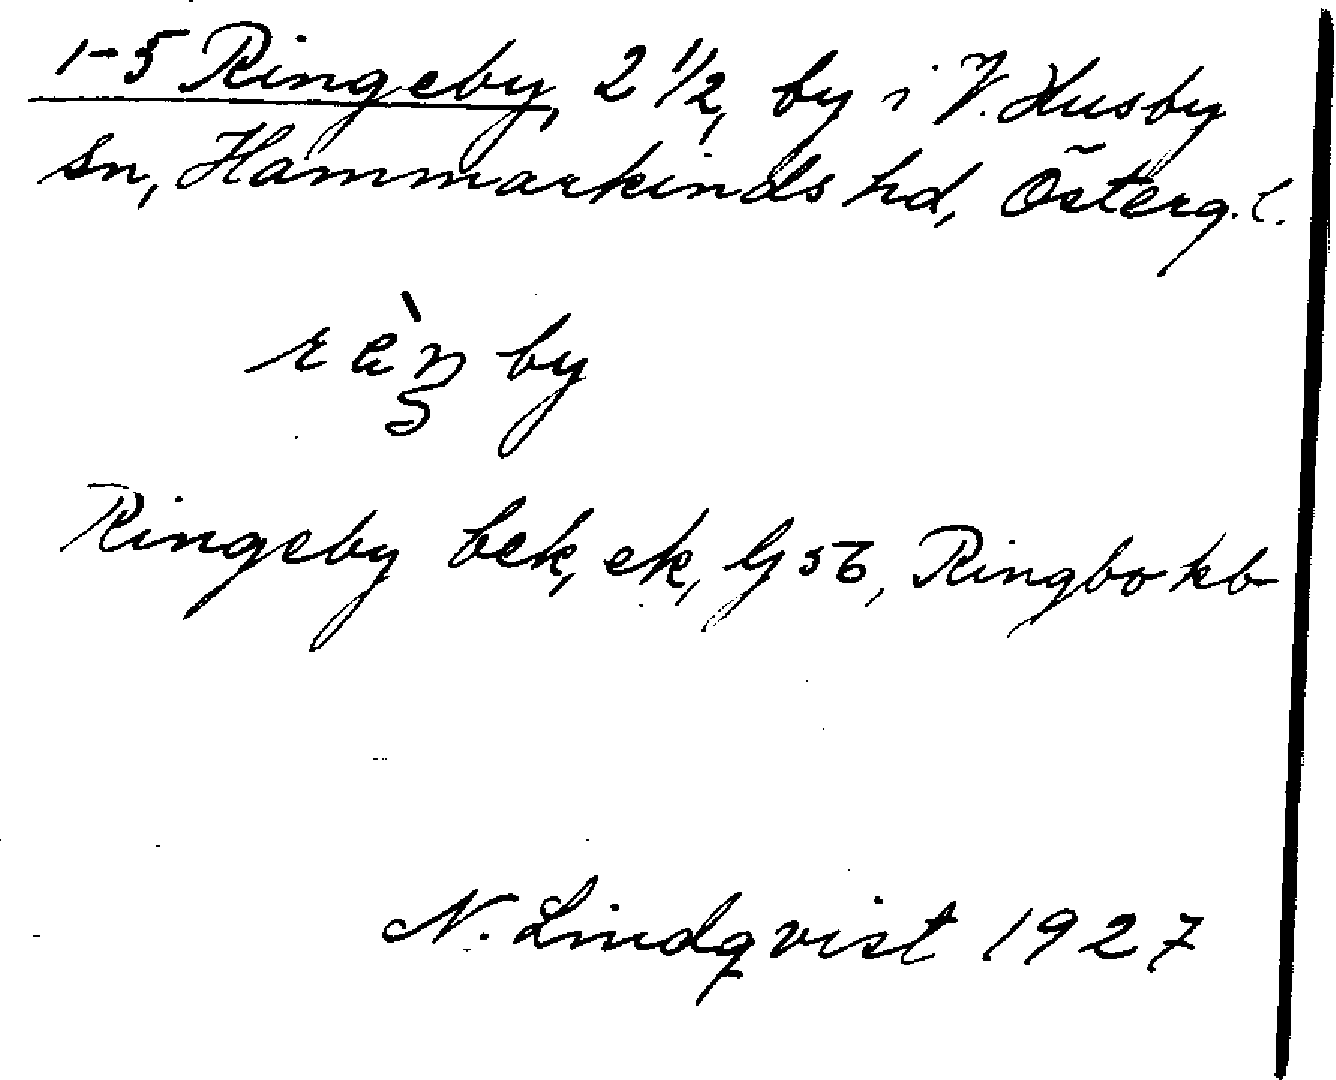 1-5 Ringeby, 2 1/2, by i V. Husby
sn, Hammarkinds hd, Österg. l.
by
Ringeby bek, ek, Ringbo kb
N. Lindqvist 1927